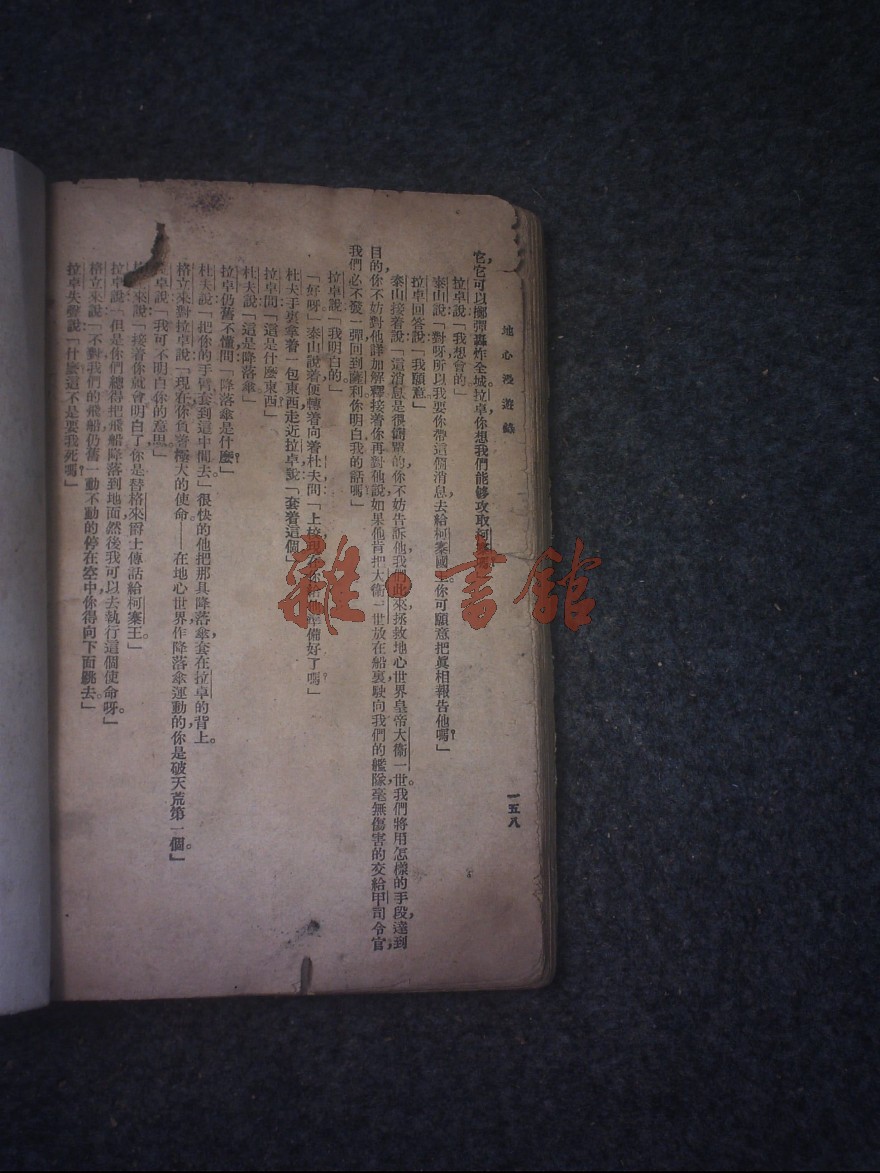 地心漫遊錄
一五八
它它可以擲彈轟炸全城拉卓你想我們能够攻取柯
拉卓說「我想會的。」
泰山說「對呀所以我要你帶這個消息去給柯塞國王你可願意把眞相報吿他嗎？」
拉卓回答說「我願意。」
泰山接着說「這消息是很簡單的你不妨告訴他我們此來拯救地心世界皇帝大衞一世。我們將用怎樣的手段達到
目的，你不妨對他詳加解釋接着你再對他說如果他肯把大衞一世放在船裏駛向我們的艦隊，毫無傷害的交給甲司令官，
我們必不發一彈回到薩利你明白我的話嗎」
拉卓說「我明白的」
「好呀。」泰山說着便轉着向着杜夫問「上校 準備好了嗎？」
杜夫手裏拿着一包東西走近拉卓說「套着這個」
拉卓問「這是什麼東西？」
杜夫說「這是降落傘。」
拉卓仍舊不懂問「降落傘是什麼？」
杜夫說「把你的手臂套到這中間去」很快的他把那具降落傘套在拉卓的背上。
格立來對拉卓說「現在你負着極大的使命——在地心世界作降落傘運動的你是破天荒第一個。」
卓說「我可不明白你的意思」
來說「接着你就會明白了你是替格來爵士傳話給柯塞王。」
拉卓說「但是你們總得把飛船降落到地面然後我可以去執行這個使命呀。」
格立來說「不對我們的飛船仍舊一動不動的停在空中你得向下面跳去。」
拉卓失聲說「什麼這不是要我死嗎？」
雜·書館